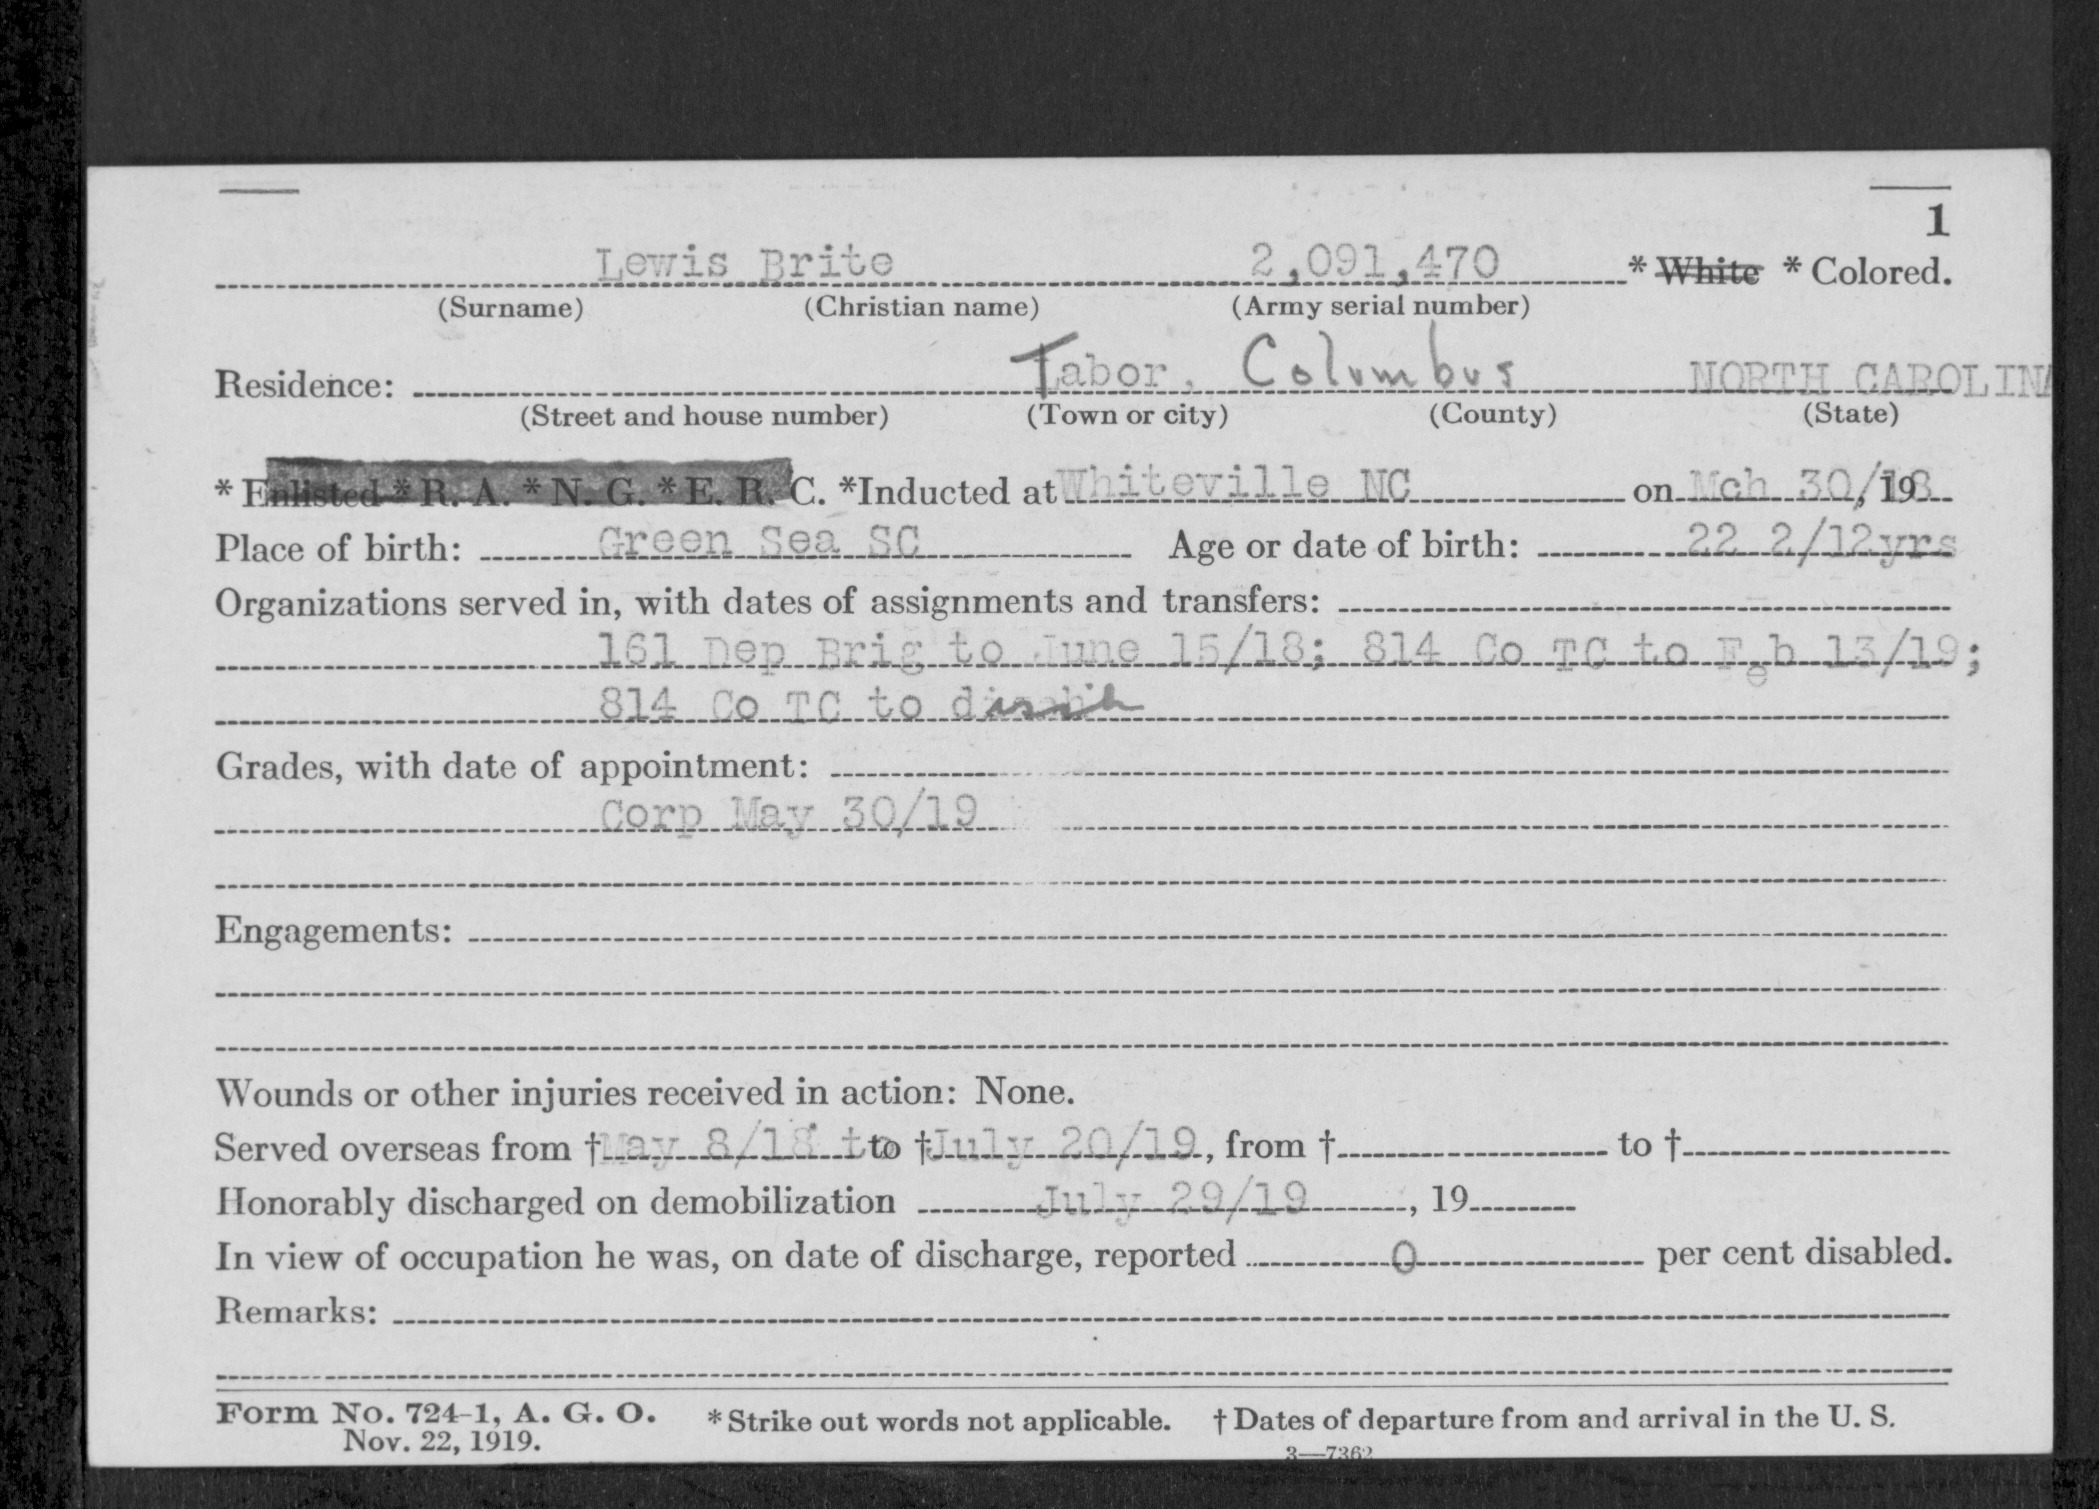 1
Lewis Brite 2,091,470 * White * Colored.
(Surname) (Christian name) (Army serial number)
Residence: Tabor, Columbus NORTH CAROLINA
(Street and house number) (Town or city) (County) (State)
* Enlisted * R. A. * N. G. * E. R. C. *Inducted at Whiteville NC on Mch 30/, 1918
Place of birth: Green Sea SC Age or date of birth: 22 2/12yrs
Organizations served in, with dates of assignments and transfers:
161 Dep Brig to June 15/18; 814 Co TC to Feb 13/19;
814 Co TC to disch
Grades, with date of appointment:
Corp May 30/19
Engagements:
Wounds or other injuries received in action: None.
Served overseas from † May 8/18 to to † July 20/19, from † to †
Honorably discharged on demobilization July 29/19, 19
In view of occupation he was, on date of discharge, reported 0 per cent disabled.
Remarks:
Form No. 724-1, A. G. O. * Strike out words not applicable. † Dates of departure from and arrival in the U. S.
Nov. 22, 1919.
3—7362